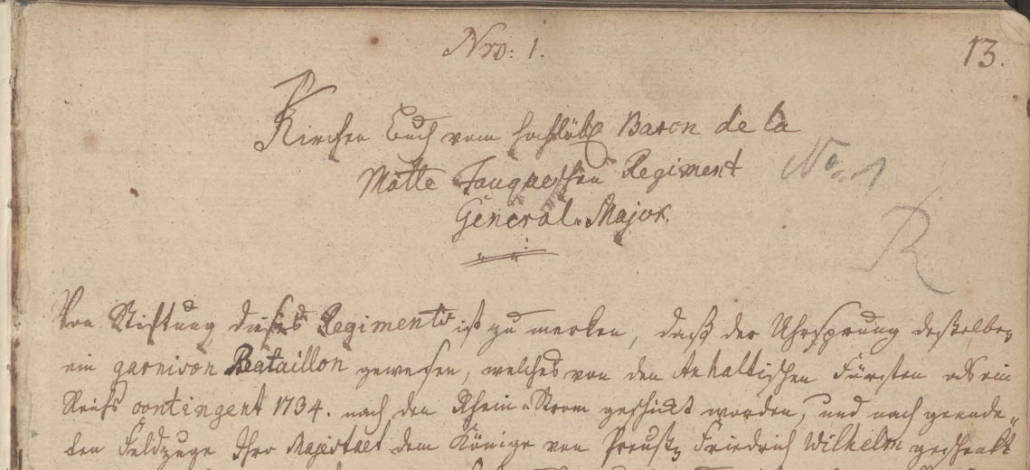 Nro: 1.
13.
Kirchen Buch vom hochlöbl Baron de la
Motte Fouqueschen Regiment
No. 1
General-Major.
R
Von Stiftung dieses Regiments ist zu merken, daß der Uhrsprung deßelben
ein garnison Bataillon gewesen, welches von den Anhaltischen Fürsten als ein
Reichs contingent 1734. nach den Rhein-Strom geschickt worden, und nach geende-
ten Feldzuge Ihro Majestaet dem Könige von Preußen Friedrich Wilhelm geschenkt